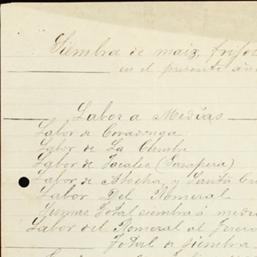 Siembra de maiz, frijol
en el presente año
Labor a Medias
Labor de Covadonga
Labor de La Chumbe
Labor de Jacales (Zarapera)
Labor de Ancha y Santa Cru
Labor Del Nomeral
Suma Total siembra a medias
Labor del Nomeral al Tercio
Total de siembra